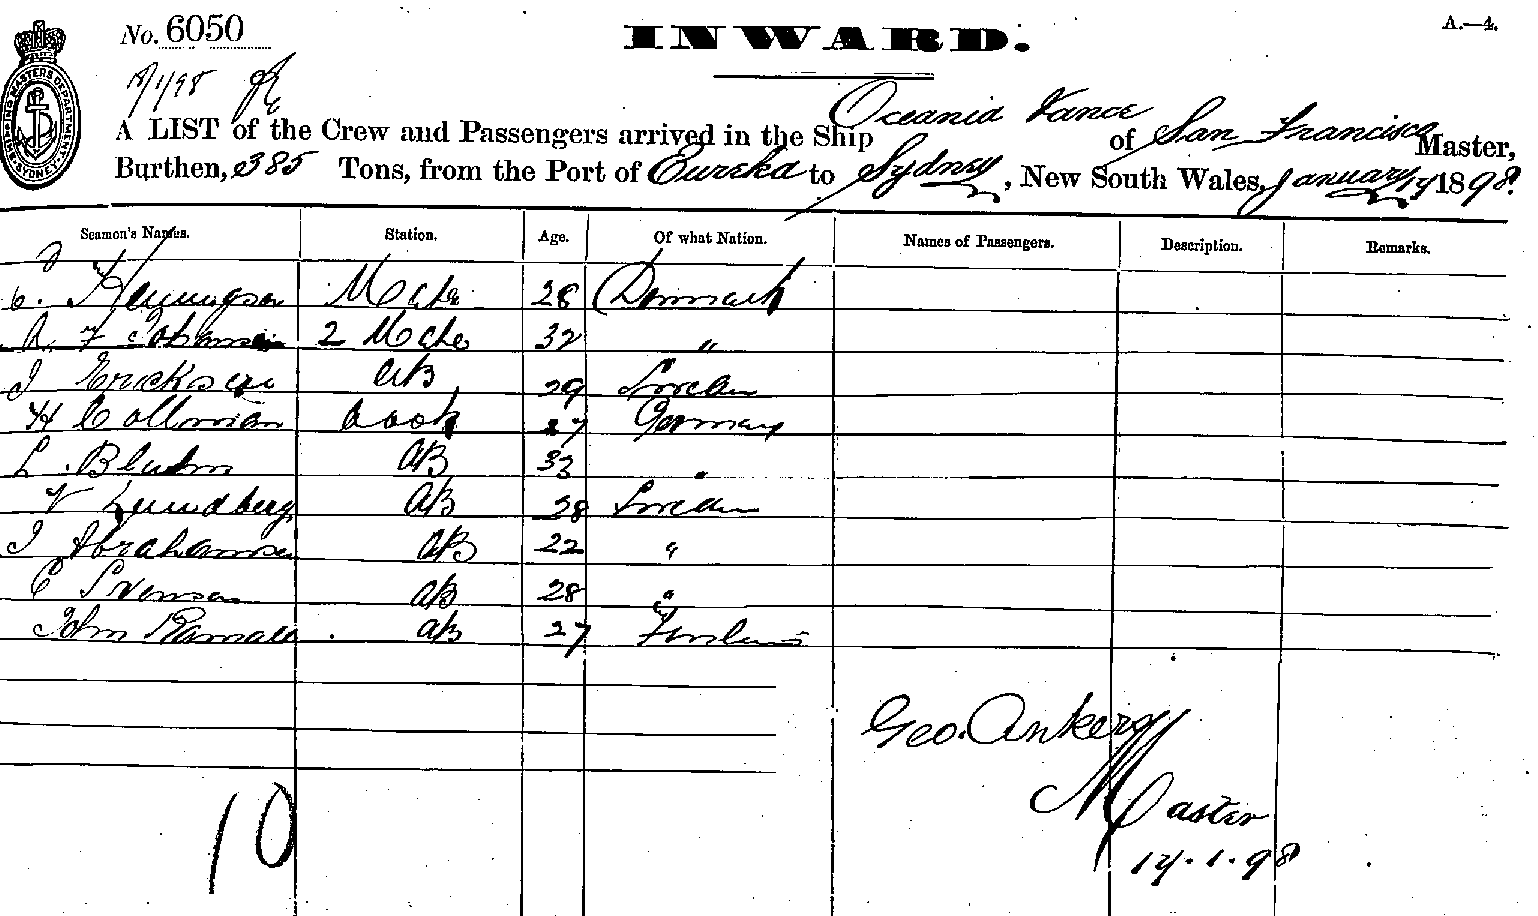 No. 6050
INWARD.
A.—4.
SHIPPING MASTERS DEPARTMENT SYDNEY
A LIST of the Crew and Passengers arrived in the Ship Oceania Vance of San Francisco Master,
Burthen, 385 Tons, from the Port of Eureka to Sydney, New South Wales, January 17 1898.
Seamen's Names. Station. Age. Of what Nation. Names of Passengers. Description. Remarks.
C. Mate 28 Denmark
A. F Johansen 2 Mate 32 "
J Erickson AB 29 Sweden
H Collman Cook 27 Germany
L. Bluhm AB 33 "
V Lundberg AB 28 Sweden
J Abrahamsen AB 22 "
C Svensen AB 28 "
John AB 27
10
Geo. Ankerg
Master
17.1.98